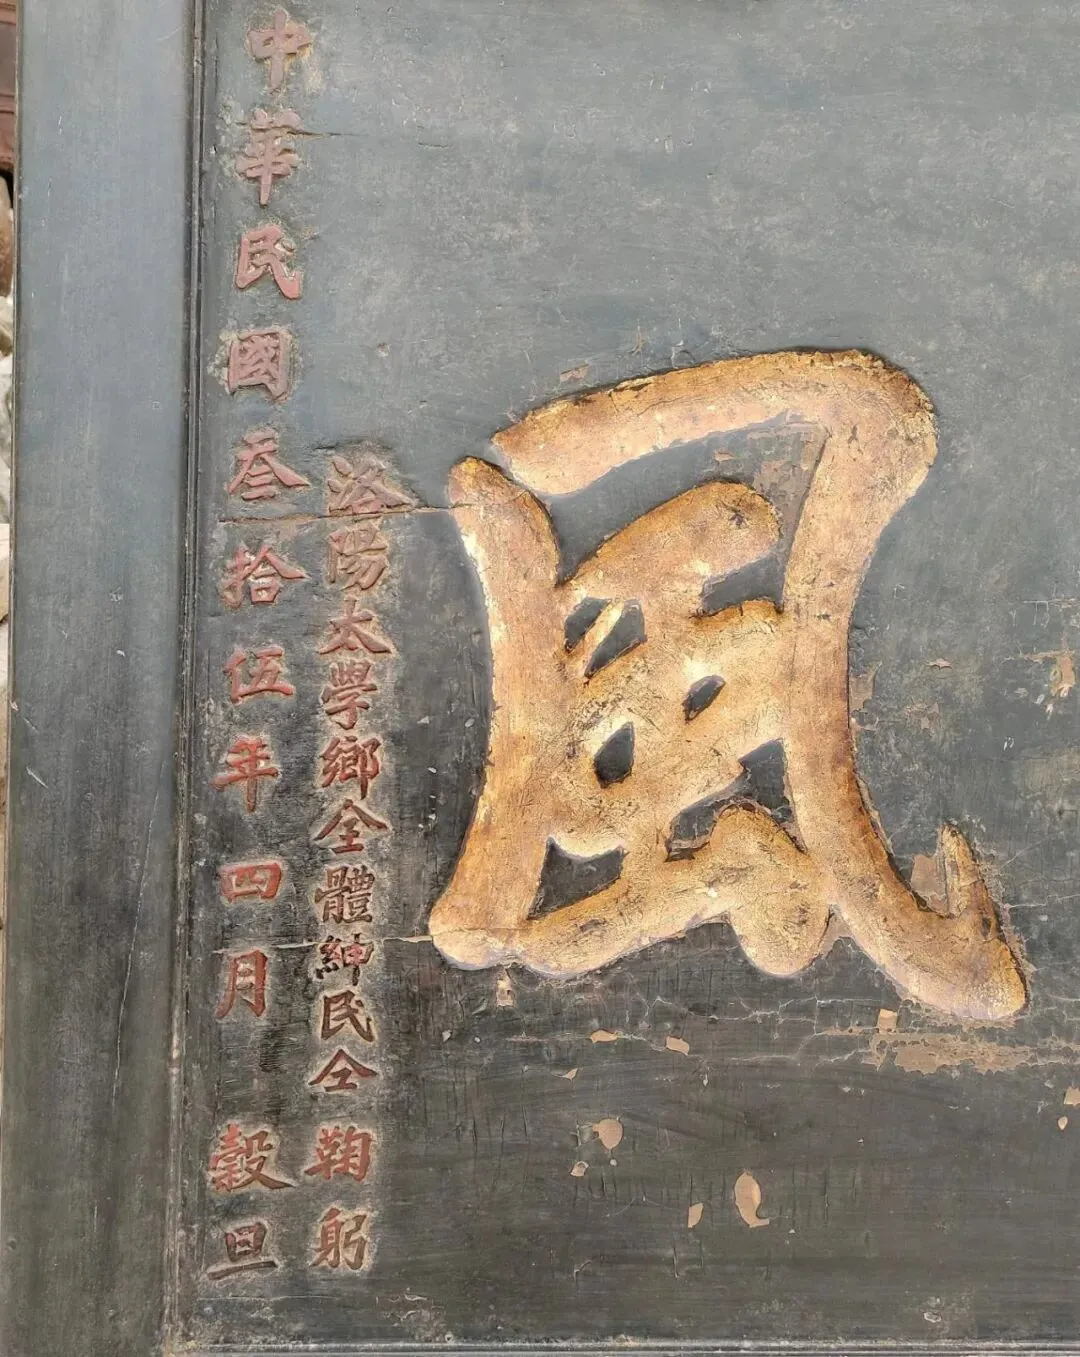 風
洛陽太學鄉全體紳民仝鞠躬
中華民國叁拾伍年四月穀旦